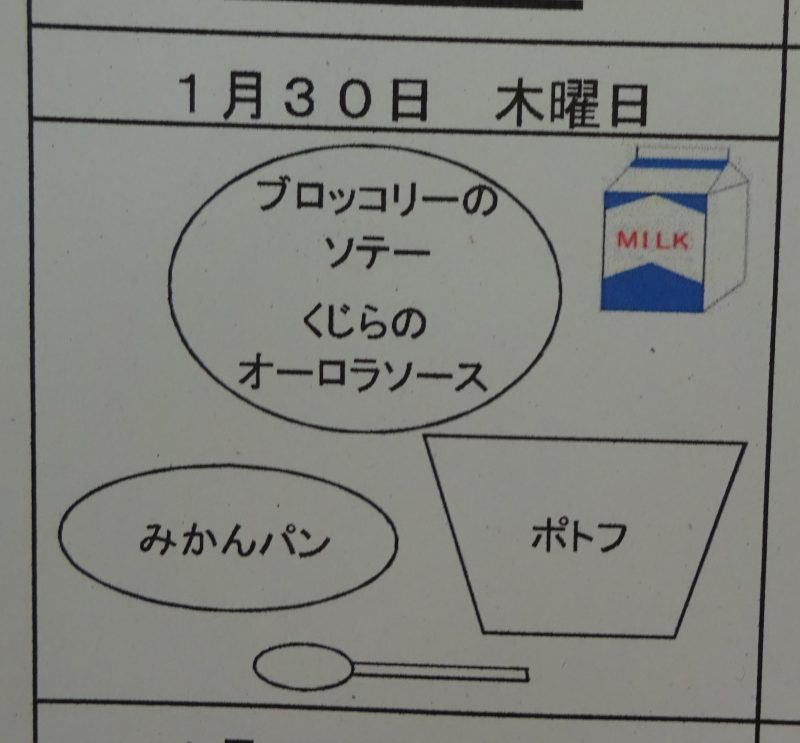 １月３０日　木曜日
ブロッコリーの
ソテー
くじらの
オーロラソース
MILK
みかんパン
ポトフ